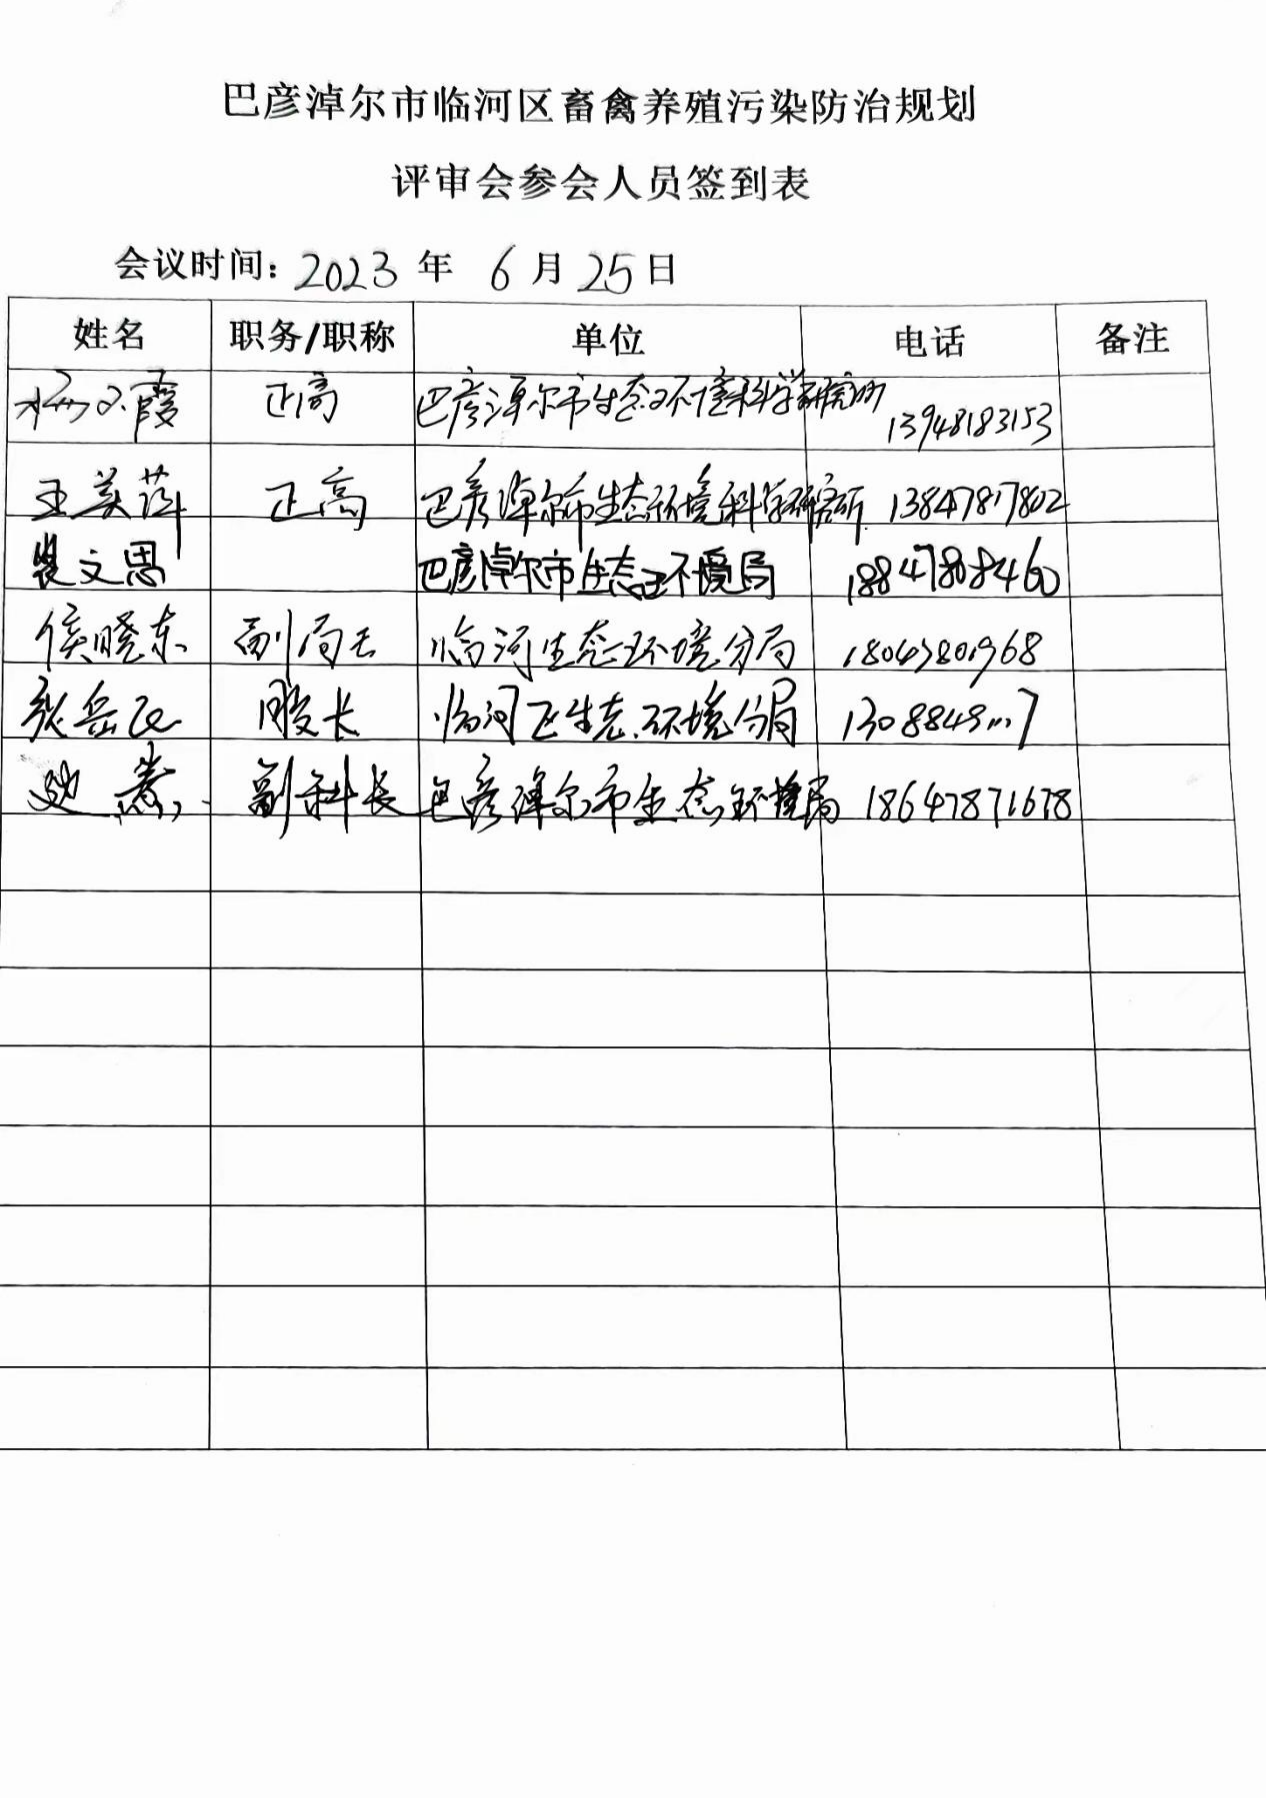 巴彦淖尔市临河区畜禽养殖污染防治规划
评审会参会人员签到表
会议时间：2023 年 6 月 25 日
姓名 职务/职称 单位 电话 备注
霞 正高 巴彦淖尔市生态环境科学研究所 13948183153
王美萍 正高 巴彦淖尔市生态环境科学研究所 13847817802
裴文思 巴彦淖尔市生态环境局 18847808460
侯晓东 副局长 临河生态环境分局 18047801968
张岳 股长 临河区生态环境分局
副科长 巴彦淖尔市生态环境局 18647871678